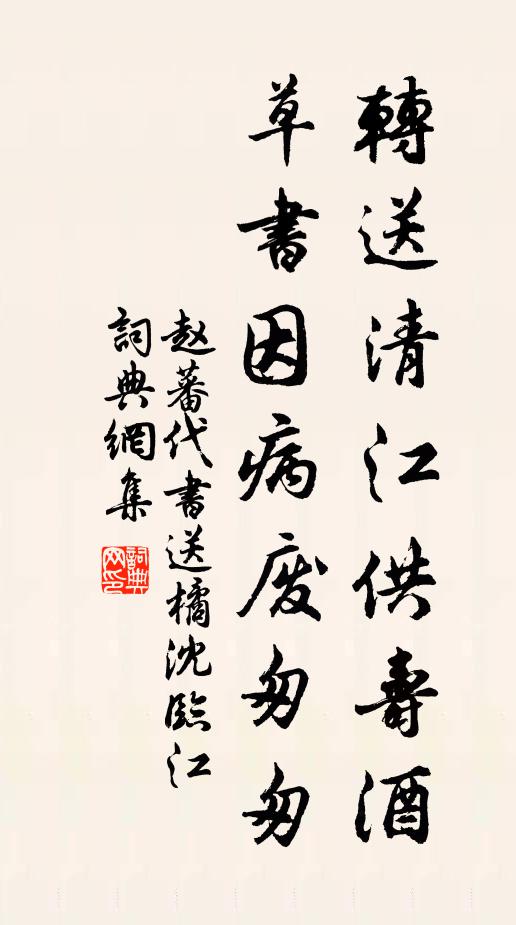 轉送清江供壽酒
草書因病廢匆匆
赵蕃代書送橘沈臨江
詞典網集
詞典网印